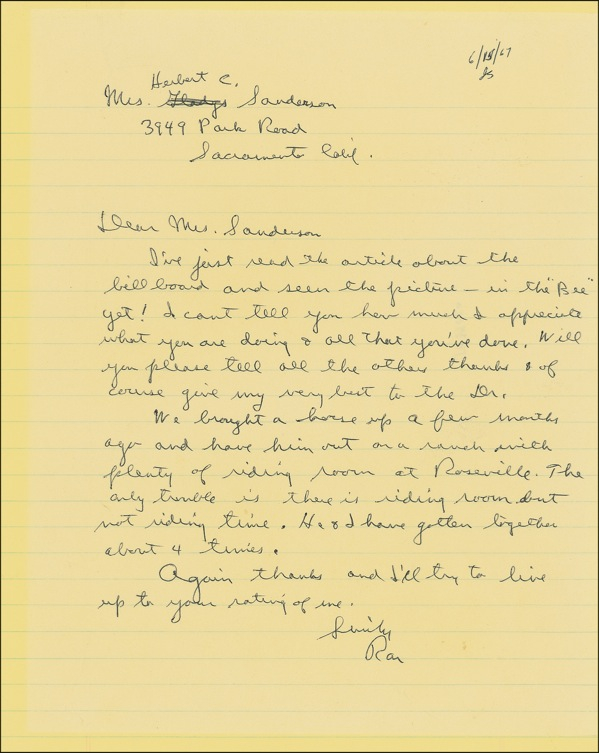 6/15/67
Herbert C.
Mrs. Gladys Sanderson
3949 Park Road
Sacramento Calif.
Dear Mrs. Sanderson
I've just read the article about the
billboard and seen the picture – in the "Bee"
yet! I cant tell you how much I appreciate
what you are doing & all that you've done. Will
you please tell all the others thanks & of
course give my very best to the Dr.
We brought a horse up a few months
ago and have him out on a ranch with
plenty of riding room at Roseville. The
only trouble is there is riding room but
not riding time. He & I have gotten together
about 4 times.
Again thanks and I'll try to live
up to your rating of me.
Ron